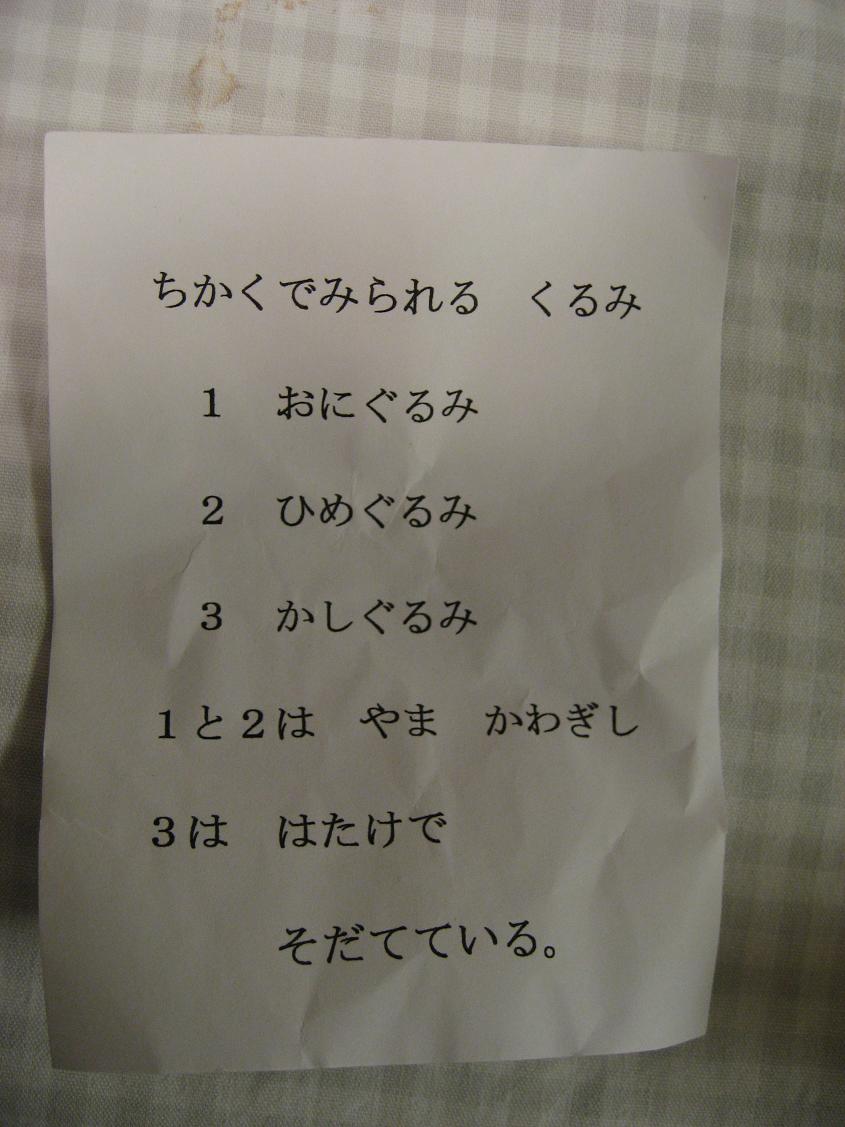 ちかくでみられる　くるみ
１　おにぐるみ
２　ひめぐるみ
３　かしぐるみ
１と２は　やま　かわぎし
３は　はたけで
そだてている。